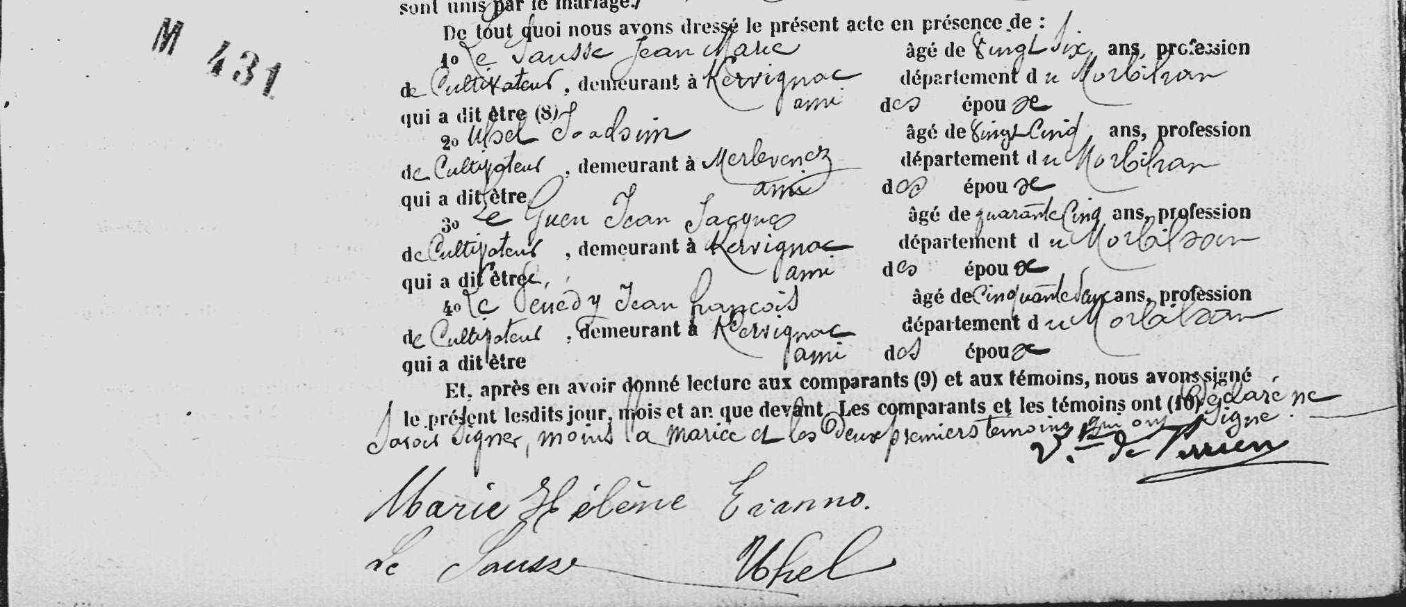 M 431
sont unis par le mariage.
De tout quoi nous avons dressé le présent acte en présence de :
1o Le Sausse Jean Marie âgé de Vingt Six ans, profession
de Cultivateur, demeurant à Kervignac département du Morbihan
qui a dit être (8) ami des époux
2o Uhel Joachim âgé de Vingt Cinq ans, profession
de Cultivateur, demeurant à Merlevenez département du Morbihan
qui a dit être ami des époux
3o Le Guen Jean Jacques âgé de quarante Cinq ans, profession
de Cultivateur, demeurant à Kervignac département du Morbihan
qui a dit être ami des époux
4o Le Jean François âgé de Cinquante ans, profession
de Cultivateur, demeurant à Kervignac département du Morbihan
qui a dit être ami des époux
Et, après en avoir donné lecture aux comparants (9) et aux témoins, nous avons signé
le présent lesdits jour, mois et an que devant. Les comparants et les témoins ont (10) déclaré ne
Savoir Signer, moins la mariée et les deux premiers témoins qui ont Signé.
Vte de Perrien
Marie Hélène Ezanno.
Le Sausse Uhel